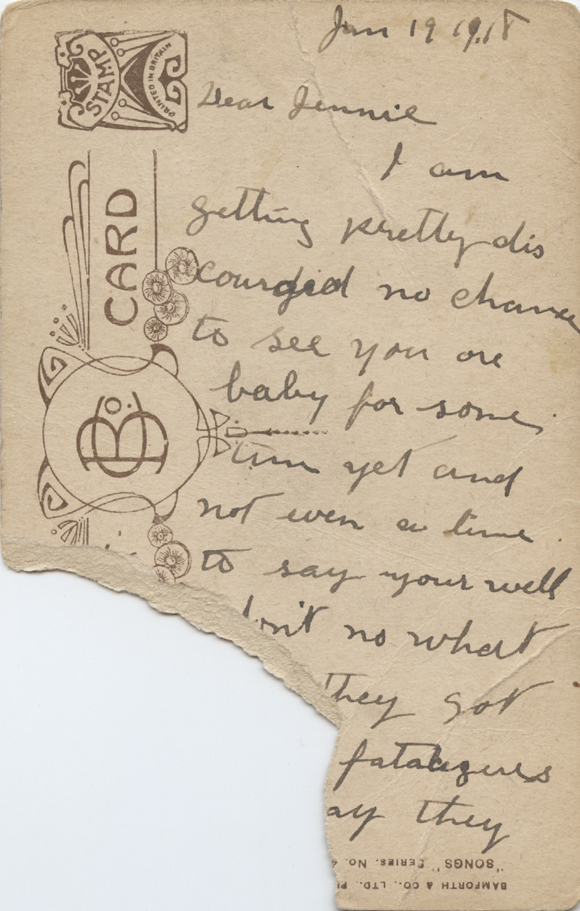 Jan 19 1918
STAMP
PRINTED IN BRITAIN
CARD
B Co.
Dear Jennie
I am
getting pretty dis
couraged no chance
to see you ore
baby for some
time yet and
not even a line
to say your well
on't no what
they got
ay they
"SONGS" SERIES, No. 4
BAMFORTH & CO., LTD.,